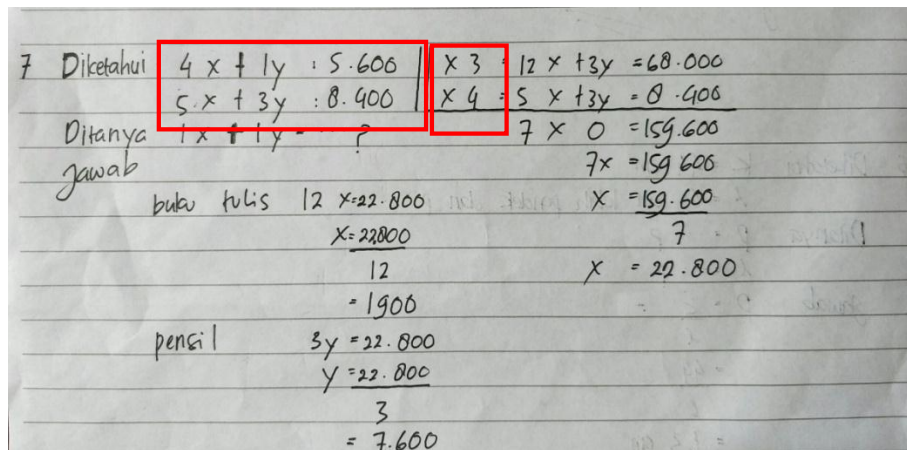 7 Diketahui 4 x + 1y : 5.600 | x 3 = 12 x + 3y = 68.000
5.x + 3y : 8.400 | x 4 = 5 x + 3y = 8.400
Ditanya 1x + 1y = --- ? 7 x 0 = 159.600
Jawab 7x = 159.600
buku tulis 12 x = 22.800 x = 159.600
x = 22800 7
12 x = 22.800
= 1900
pensil 3y = 22.800
y = 22.800
3
= 7.600